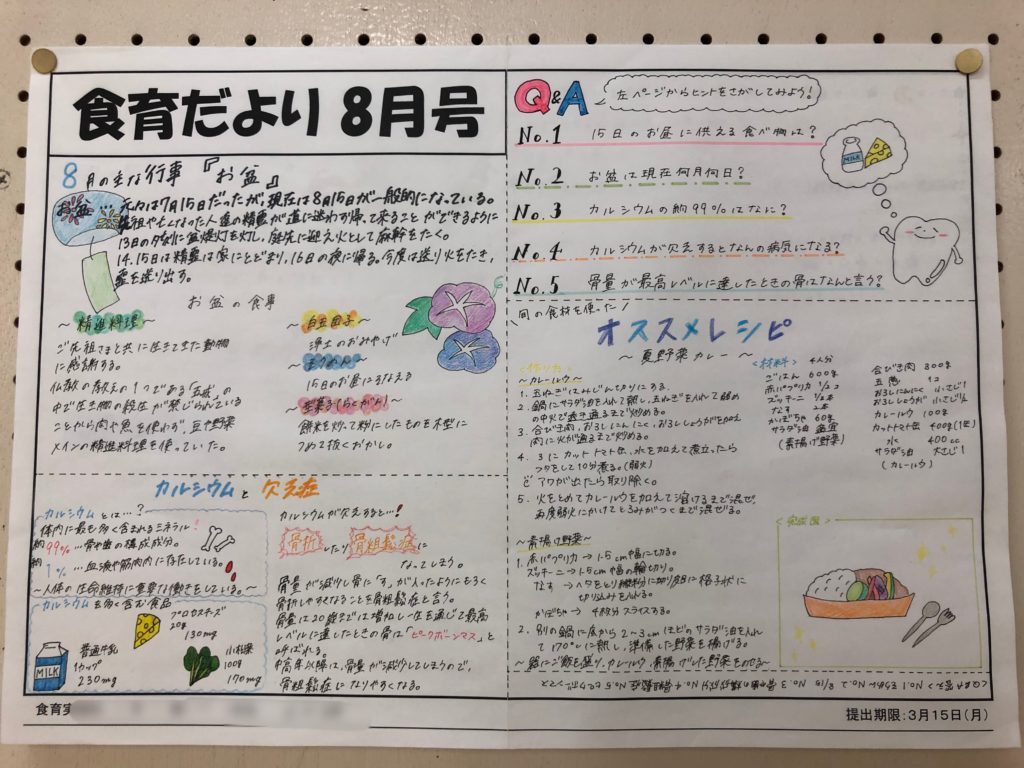 食育だより 8月号
8月の主な行事『お盆』
お盆…元々は7月15日だったが、現在は8月15日が一般的になっている。
先祖や亡なった人達の精霊が道に迷わず帰って来ることができるように
13日の夕刻に盆提灯を灯し、庭先に迎え火として麻幹をたく。
14、15日は精霊は家にとどまり、16日の夜に帰る。今度は送り火をたき、
霊を送り出す。
お盆の食事
〜精進料理〜
ご先祖さまと共に生きてきた動物
に感謝する。
仏教の教えの1つである「五戒」の
中で生き物の殺生が禁じられている
ことから肉や魚を使わず、豆や野菜
メインの精進料理を使っていた。
〜白玉団子〜
浄土のおみやげ
〜そうめん〜
15日のお昼にそなえる
〜生菓子(らくがん)〜
餅米を炒って粉にしたものを木型に
つめて抜くおかし。
カルシウムと欠乏症
カルシウムとは…?
体内に最も多く含まれるミネラル!
約99%…骨や歯の構成成分。
約1%…血液や筋肉内に存在している。
〜人体の生命維持に重要な働きをしている。〜
カルシウムを多く含む食品
MILK
普通牛乳
1カップ
230mg
プロセスチーズ
20g
130mg
小松菜
100g
170mg
カルシウムが欠乏すると…!
骨折したり骨粗鬆症に
なってしまう。
骨量が減少し骨に「す」が入ったようにもろく
骨折しやすくなることを骨粗鬆症と言う。
骨量は20歳までは増加し一生を通じて最高
レベルに達したときの骨は「ピークボーンマス」と
呼ばれる。
中高年以降は、骨量が減少してしまうので、
骨粗鬆症になりやすくなる。
食育実
Q&A
左ページからヒントをさがしてみよう!
No.1 15日のお昼に供える食べ物は?
No.2 お盆は現在何月何日?
No.3 カルシウムの約99%はなに?
No.4 カルシウムが欠乏するとなんの病気になる?
No.5 骨量が最高レベルに達したときの骨はなんと言う?
MILK
旬の食材を使った
オススメレシピ
〜夏野菜カレー〜
<作り方>
〜カレールウ〜
1. 玉ねぎはみじん切りにする。
2. 鍋にサラダ油を入れて熱し、玉ねぎを入れて弱め
の中火で透き通るまで炒める。
3. 合びき肉、おろしにんにく、おろししょうがを加え
肉に火が通るまで炒める。
4. 3にカットトマト缶、水を加えて煮立ったら
フタをして10分煮る。(弱火)
アワが出たら取り除く。
5. 火をとめてカレールウを加えて溶けるまで混ぜ、
再度弱火にかけてとろみがつくまで混ぜる。
〜素揚げ野菜〜
1. 赤パプリカ→1.5cm幅に切る。
ズッキーニ→1.5cm幅の輪切り。
なす→ヘタをとり縦割りに切り皮目に格子状に
切り込みを入れる。
かぼちゃ→4枚分スライスする。
2. 別の鍋に底から2〜3cmほどのサラダ油を入れ
て170°に熱し、準備した野菜を揚げる。
〜器にご飯を盛り、カレールウ、素揚げした野菜をのせる〜
<材料> 4人分
ごはん 600g
赤パプリカ 1/2コ
ズッキーニ 1/2本
なす 2本
かぼちゃ 60g
サラダ油 適量
(素揚げ野菜)
合びき肉 300g
玉葱 1コ
おろしにんにく 小さじ1
おろししょうが 小さじ1/2
カレールウ 100g
カットトマト缶 400g(1缶)
水 400cc
サラダ油 大さじ1
(カレールウ)
<完成図>
提出期限:3月15日(月)